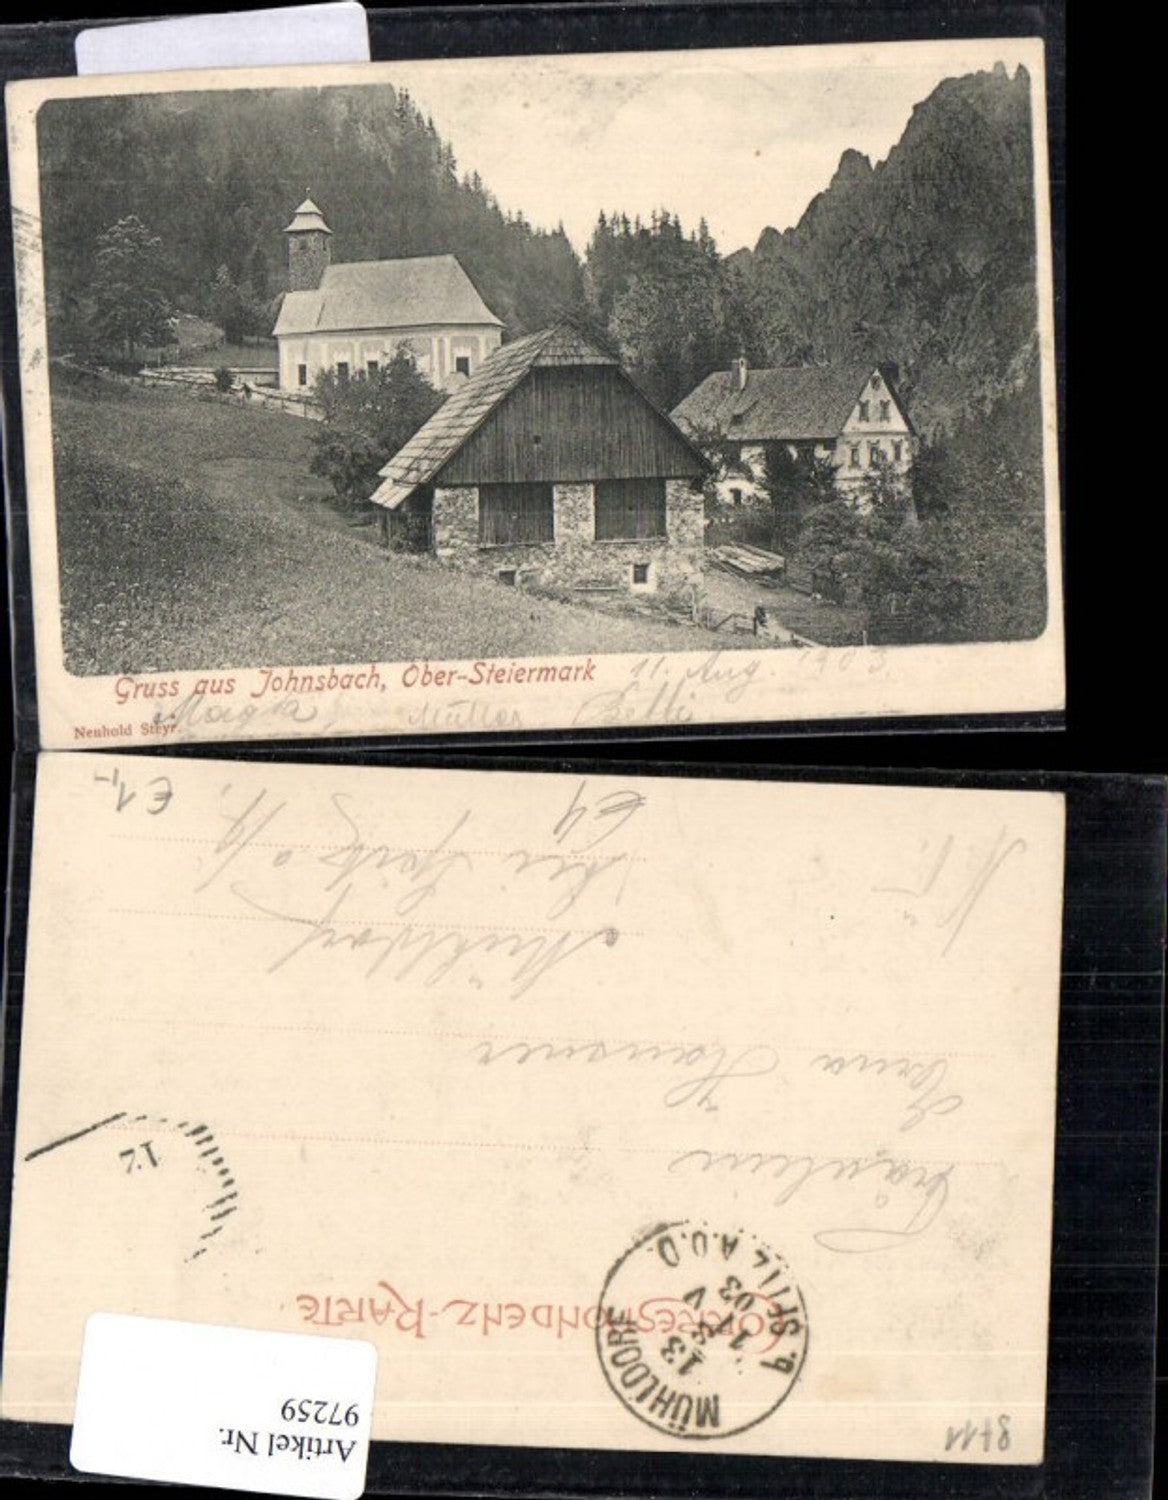 Gruss aus Johnsbach, Ober-Steiermark 11. Aug. 1903
Müller Betti
Neuhold Steyr.
Correspondenz-Karte
MÜHLDORF
b. SPITZ A. D. D.
13
03
12
Fräulein
Anna Hausner
Mühldorf
bei Spitz a/d.
N. Ö.
€4
€1,-
8411
Artikel Nr.
97259